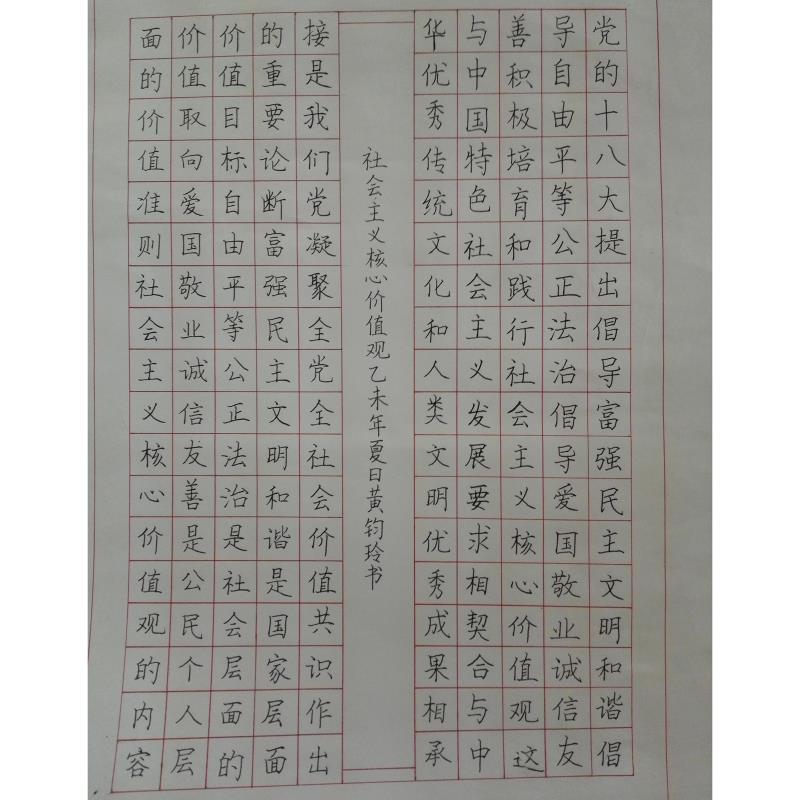 党的十八大提出倡导富强民主文明和谐倡
导自由平等公正法治倡导爱国敬业诚信友
善积极培育和践行社会主义核心价值观这
与中国特色社会主义发展要求相契合与中
华优秀传统文化和人类文明优秀成果相承
社会主义核心价值观乙未年夏日黄钧玲书
接是我们党凝聚全党全社会价值共识作出
的重要论断富强民主文明和谐是国家层面
价值目标自由平等公正法治是社会层面的
价值取向爱国敬业诚信友善是公民个人层
面的价值准则社会主义核心价值观的内容